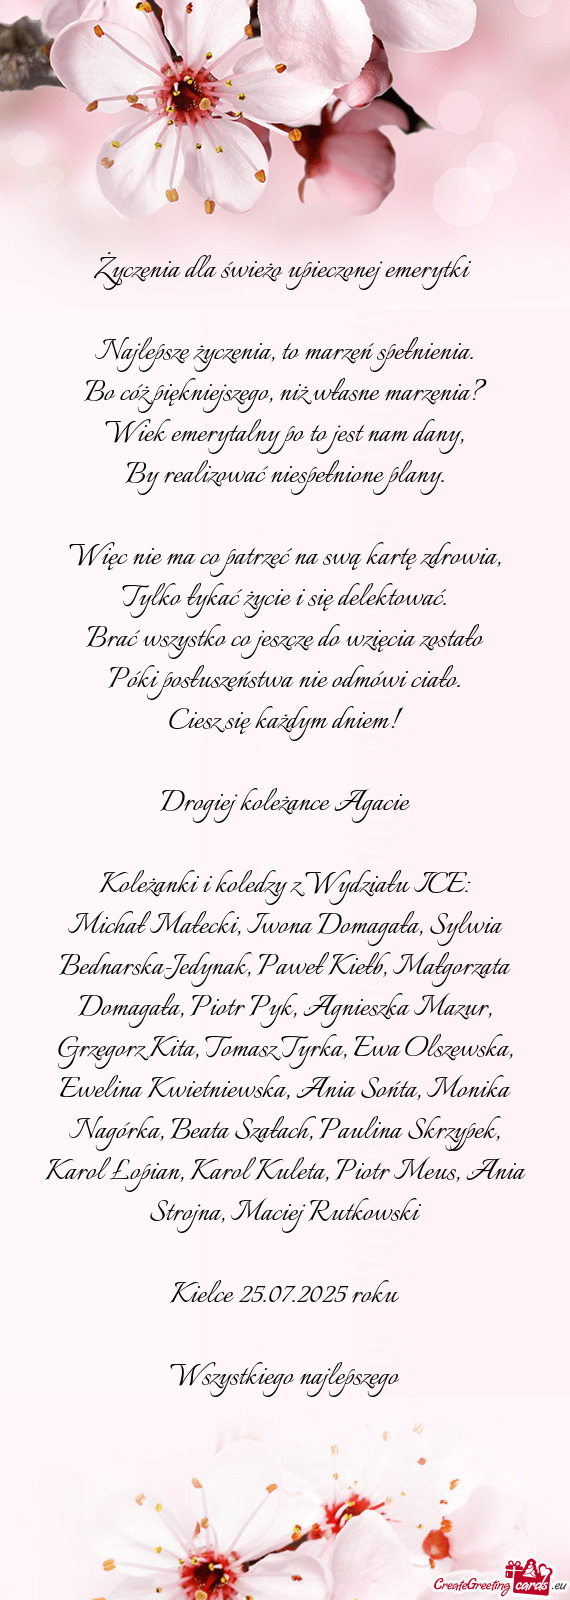 Życzenia dla świeżo upieczonej emerytki
Najlepsze życzenia, to marzeń spełnienia.
Bo cóż piękniejszego, niż własne marzenia?
Wiek emerytalny po to jest nam dany,
By realizować niespełnione plany.
Więc nie ma co patrzeć na swą kartę zdrowia,
Tylko łykać życie i się delektować.
Brać wszystko co jeszcze do wzięcia zostało
Póki posłuszeństwa nie odmówi ciało.
Ciesz się każdym dniem!
Drogiej koleżance Agacie
Koleżanki i koledzy z Wydziału ICE:
Michał Małecki, Iwona Domagała, Sylwia
Bednarska-Jedynak, Paweł Kiełb, Małgorzata
Domagała, Piotr Pyk, Agnieszka Mazur,
Grzegorz Kita, Tomasz Tyrka, Ewa Olszewska,
Ewelina Kwietniewska, Ania Sońta, Monika
Nagórka, Beata Szałach, Paulina Skrzypek,
Karol Łopian, Karol Kuleta, Piotr Meus, Ania
Strojna, Maciej Rutkowski
Kielce 25.07.2025 roku
Wszystkiego najlepszego
CreateGreeting cards .eu